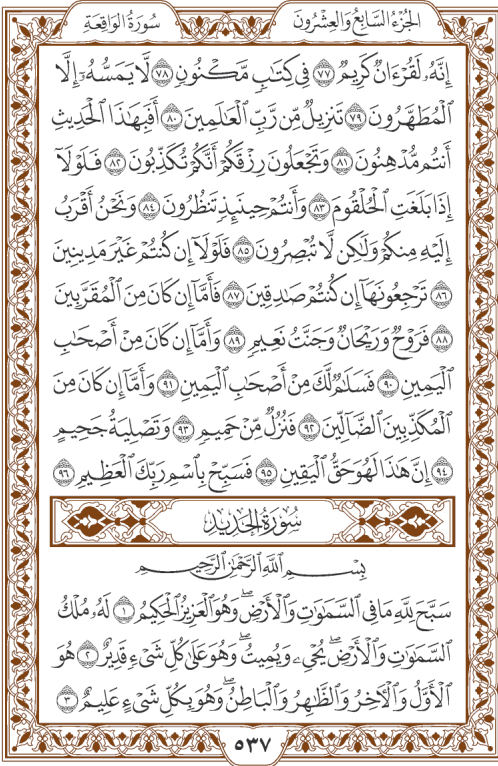 الجُزْءُ السَّابِعُ وَالعِشْرُونَ
سُورَةُ الوَاقِعَةِ
إِنَّهُۥ لَقُرْءَانٌ كَرِيمٌ ٧٧ فِى كِتَٰبٍ مَّكْنُونٍ ٧٨ لَّا يَمَسُّهُۥٓ إِلَّا
ٱلْمُطَهَّرُونَ ٧٩ تَنزِيلٌ مِّن رَّبِّ ٱلْعَٰلَمِينَ ٨٠ أَفَبِهَٰذَا ٱلْحَدِيثِ
أَنتُم مُّدْهِنُونَ ٨١ وَتَجْعَلُونَ رِزْقَكُمْ أَنَّكُمْ تُكَذِّبُونَ ٨٢ فَلَوْلَآ
إِذَا بَلَغَتِ ٱلْحُلْقُومَ ٨٣ وَأَنتُمْ حِينَئِذٍ تَنظُرُونَ ٨٤ وَنَحْنُ أَقْرَبُ
إِلَيْهِ مِنكُمْ وَلَٰكِن لَّا تُبْصِرُونَ ٨٥ فَلَوْلَآ إِن كُنتُمْ غَيْرَ مَدِينِينَ
٨٦ تَرْجِعُونَهَآ إِن كُنتُمْ صَٰدِقِينَ ٨٧ فَأَمَّآ إِن كَانَ مِنَ ٱلْمُقَرَّبِينَ
٨٨ فَرَوْحٌ وَرَيْحَانٌ وَجَنَّتُ نَعِيمٍ ٨٩ وَأَمَّآ إِن كَانَ مِنْ أَصْحَٰبِ
ٱلْيَمِينِ ٩٠ فَسَلَٰمٌ لَّكَ مِنْ أَصْحَٰبِ ٱلْيَمِينِ ٩١ وَأَمَّآ إِن كَانَ مِنَ
ٱلْمُكَذِّبِينَ ٱلضَّآلِّينَ ٩٢ فَنُزُلٌ مِّنْ حَمِيمٍ ٩٣ وَتَصْلِيَةُ جَحِيمٍ
٩٤ إِنَّ هَٰذَا لَهُوَ حَقُّ ٱلْيَقِينِ ٩٥ فَسَبِّحْ بِٱسْمِ رَبِّكَ ٱلْعَظِيمِ ٩٦
سُورَةُ الحَدِيدِ
بِسْمِ ٱللَّهِ ٱلرَّحْمَٰنِ ٱلرَّحِيمِ
سَبَّحَ لِلَّهِ مَا فِى ٱلسَّمَٰوَٰتِ وَٱلْأَرْضِ ۖ وَهُوَ ٱلْعَزِيزُ ٱلْحَكِيمُ ١ لَهُۥ مُلْكُ
ٱلسَّمَٰوَٰتِ وَٱلْأَرْضِ ۖ يُحْىِۦ وَيُمِيتُ ۖ وَهُوَ عَلَىٰ كُلِّ شَىْءٍ قَدِيرٌ ٢ هُوَ
ٱلْأَوَّلُ وَٱلْءَاخِرُ وَٱلظَّٰهِرُ وَٱلْبَاطِنُ ۖ وَهُوَ بِكُلِّ شَىْءٍ عَلِيمٌ ٣
٥٣٧